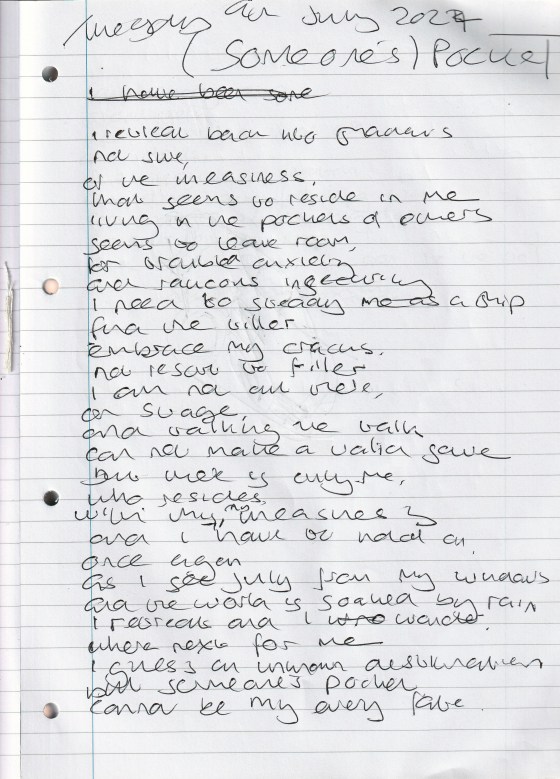 Tuesday July 2024
(Someone's) Pocket
I have been some
I retreat back into
not sure,
of the uneasiness,
that seems to reside in me
living in the pockets of others
seems to leave room,
for anxiety
and raucous
I need to steady me as a ship
find the tiller
embrace my cracks,
not resort to filler
I am not all there,
on stage,
and talking the talk
can not make a valid
But there is only me,
who resides,
with my, my uneasiness
and I have to hold on,
once again
as I see July from my windows
and the world is soaked by rain
I retreat and I who wonder,
where next for me
I guess an unknown destination
but someone's pocket
cannot be my every fate.